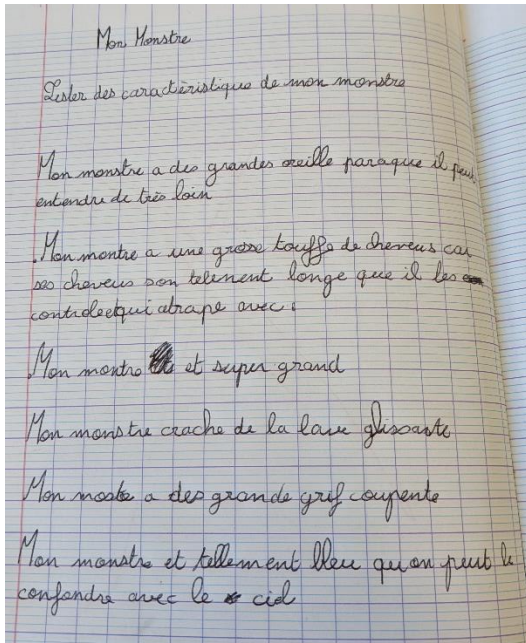 Mon Monstre
Lister des caractèristique de mon monstre
Mon monstre a des grandes oreille paraque il peut
entendre de très loin
.Mon montre a une grosse touffe de cheveus car
ses cheveus son telement longe que il les
controle et qui atrape avec.
.Mon montre et super grand
Mon monstre crache de la lave glissante
Mon moste a des grande grif coupente
Mon monstre et tellement bleu qu on peut le
confondre avec le ciel